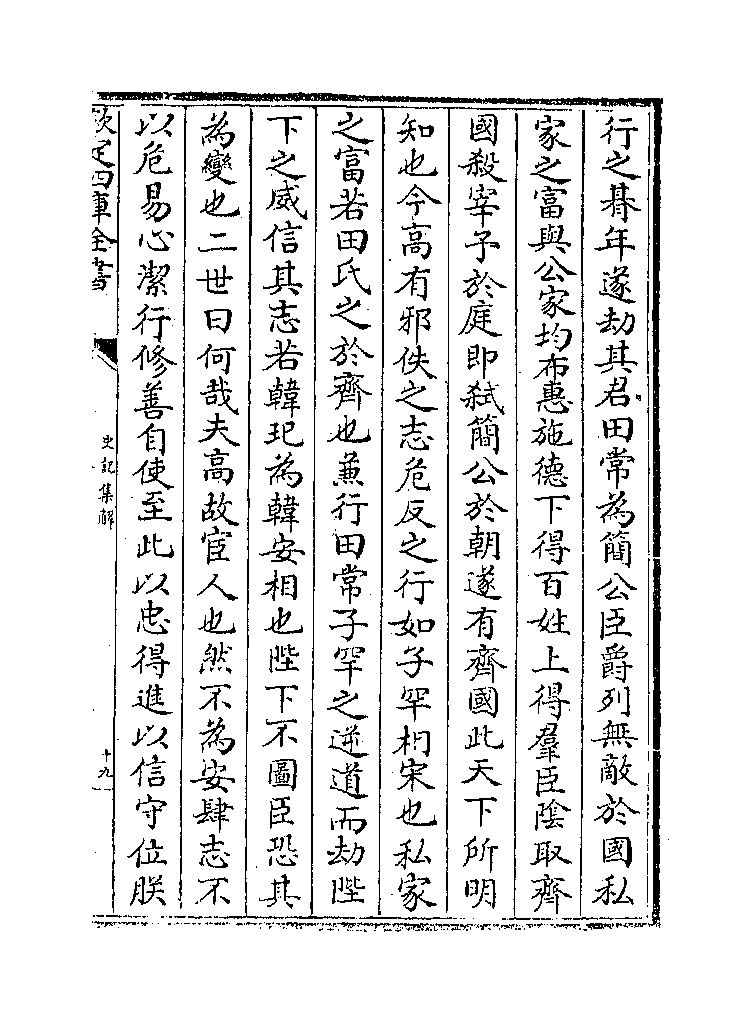 行之朞年遂劫其君田常為簡公臣爵列無敵於國私
家之富與公家均布惠施德下得百姓上得羣臣陰取齊
國殺宰予於庭即弑簡公於朝遂有齊國此天下所明
知也今高有邪佚之志危反之行如子罕相宋也私家
之富若田氏之於齊也兼行田常子罕之逆道而劫陛
下之威信其志若韓玘為韓安相也陛下不圖臣恐其
為變也二世曰何哉夫高故宦人也然不為安肆志不
以危易心潔行修善自使至此以忠得進以信守位朕
欽定四庫全書
史記集解
十九